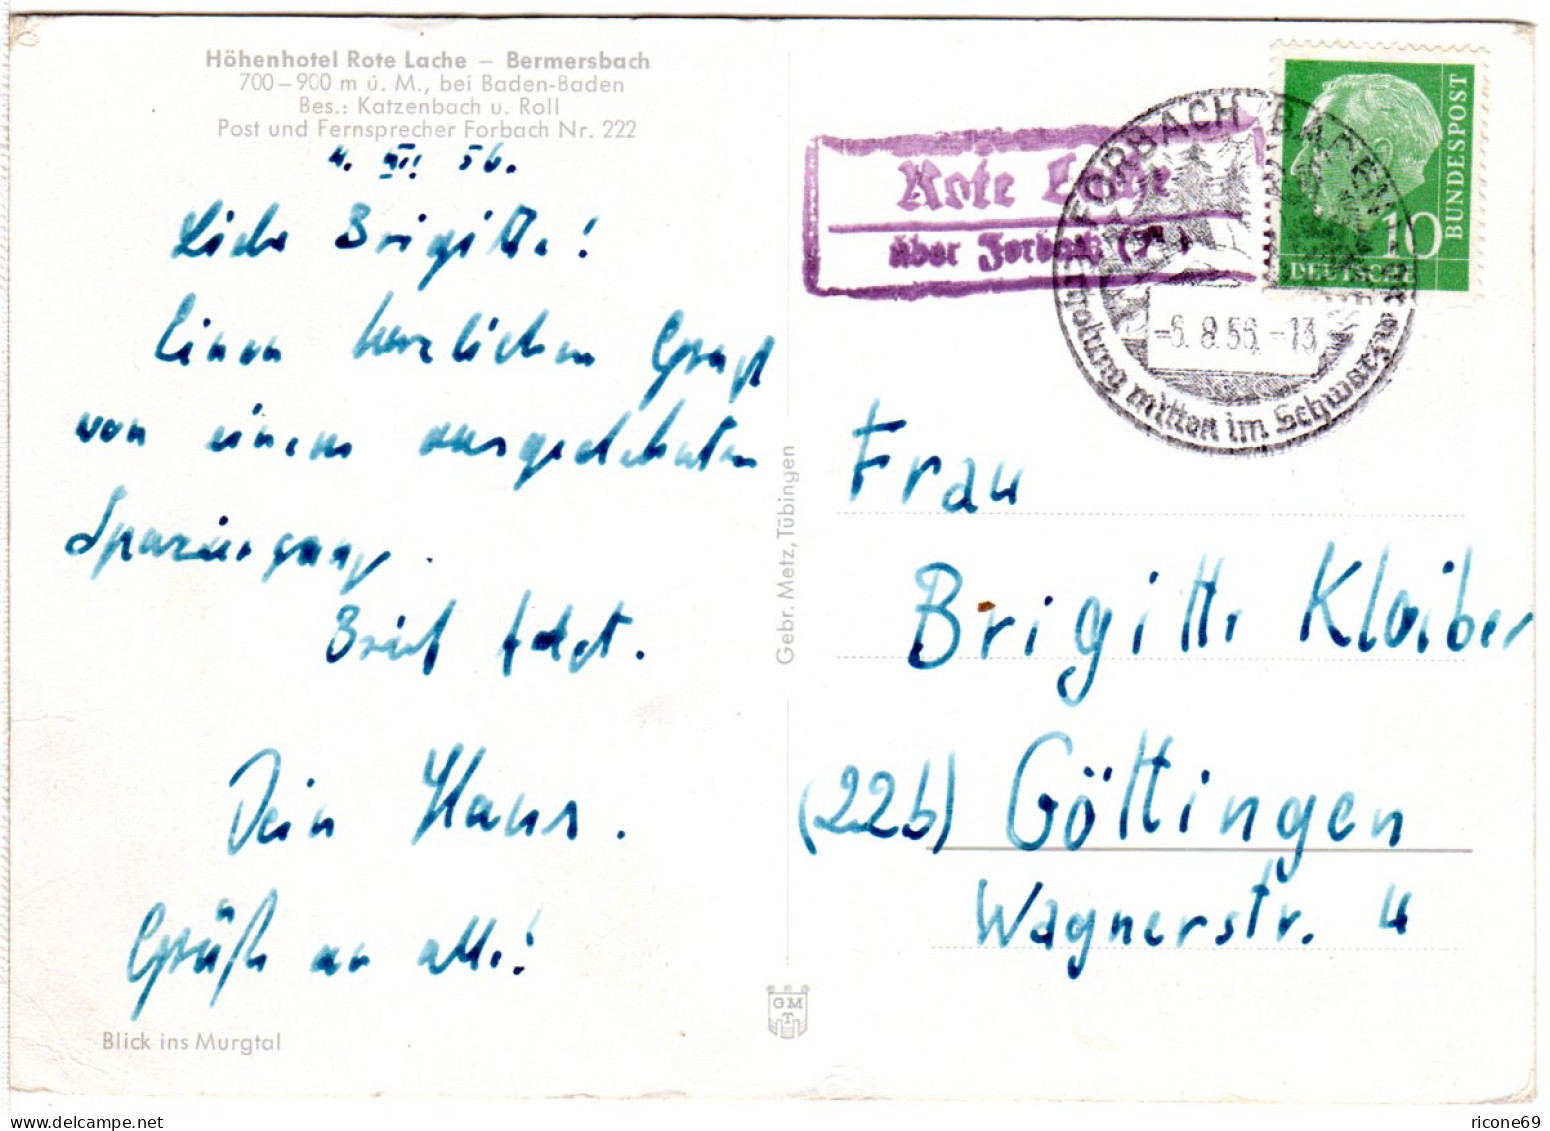 Höhenhotel Rote Lache – Bermersbach
700–900 m ü. M., bei Baden-Baden
Bes.: Katzenbach u. Roll
Post und Fernsprecher Forbach Nr. 222
4. VIII 56.
Liebe Brigitte!
Einen herzlichen Gruß
von einem ausgedehnten
Spaziergang.
Brief folgt.
Dein Hans.
Grüße an alle!
Blick ins Murgtal
Gebr. Metz, Tübingen
GMT
Rote Lache
über Forbach
FORBACH BADEN
-6.8.56.-13
Erholung mitten im Schwarzw
10
DEUTSCHE
BUNDESPOST
Frau
Brigitte Klaiber
(22b) Göttingen
Wagnerstr. 4
ricone69